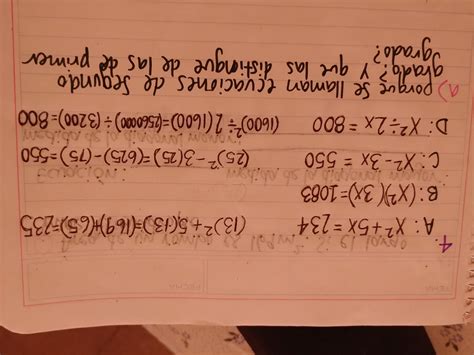 4
A: X²+5x = 234 (13)²+5(13)=(169)+(65)=235
B: (X²)(3x)=1083
C: X²-3x = 550 (25)²-3(25)=(625)-(75)=550
D: X²÷2x = 800 (1600)²÷2(1600)=(2560000)÷(3200)=800
a) porque se llaman ecuaciones de segundo
grado? Y que las distingue de las de primer
grado?